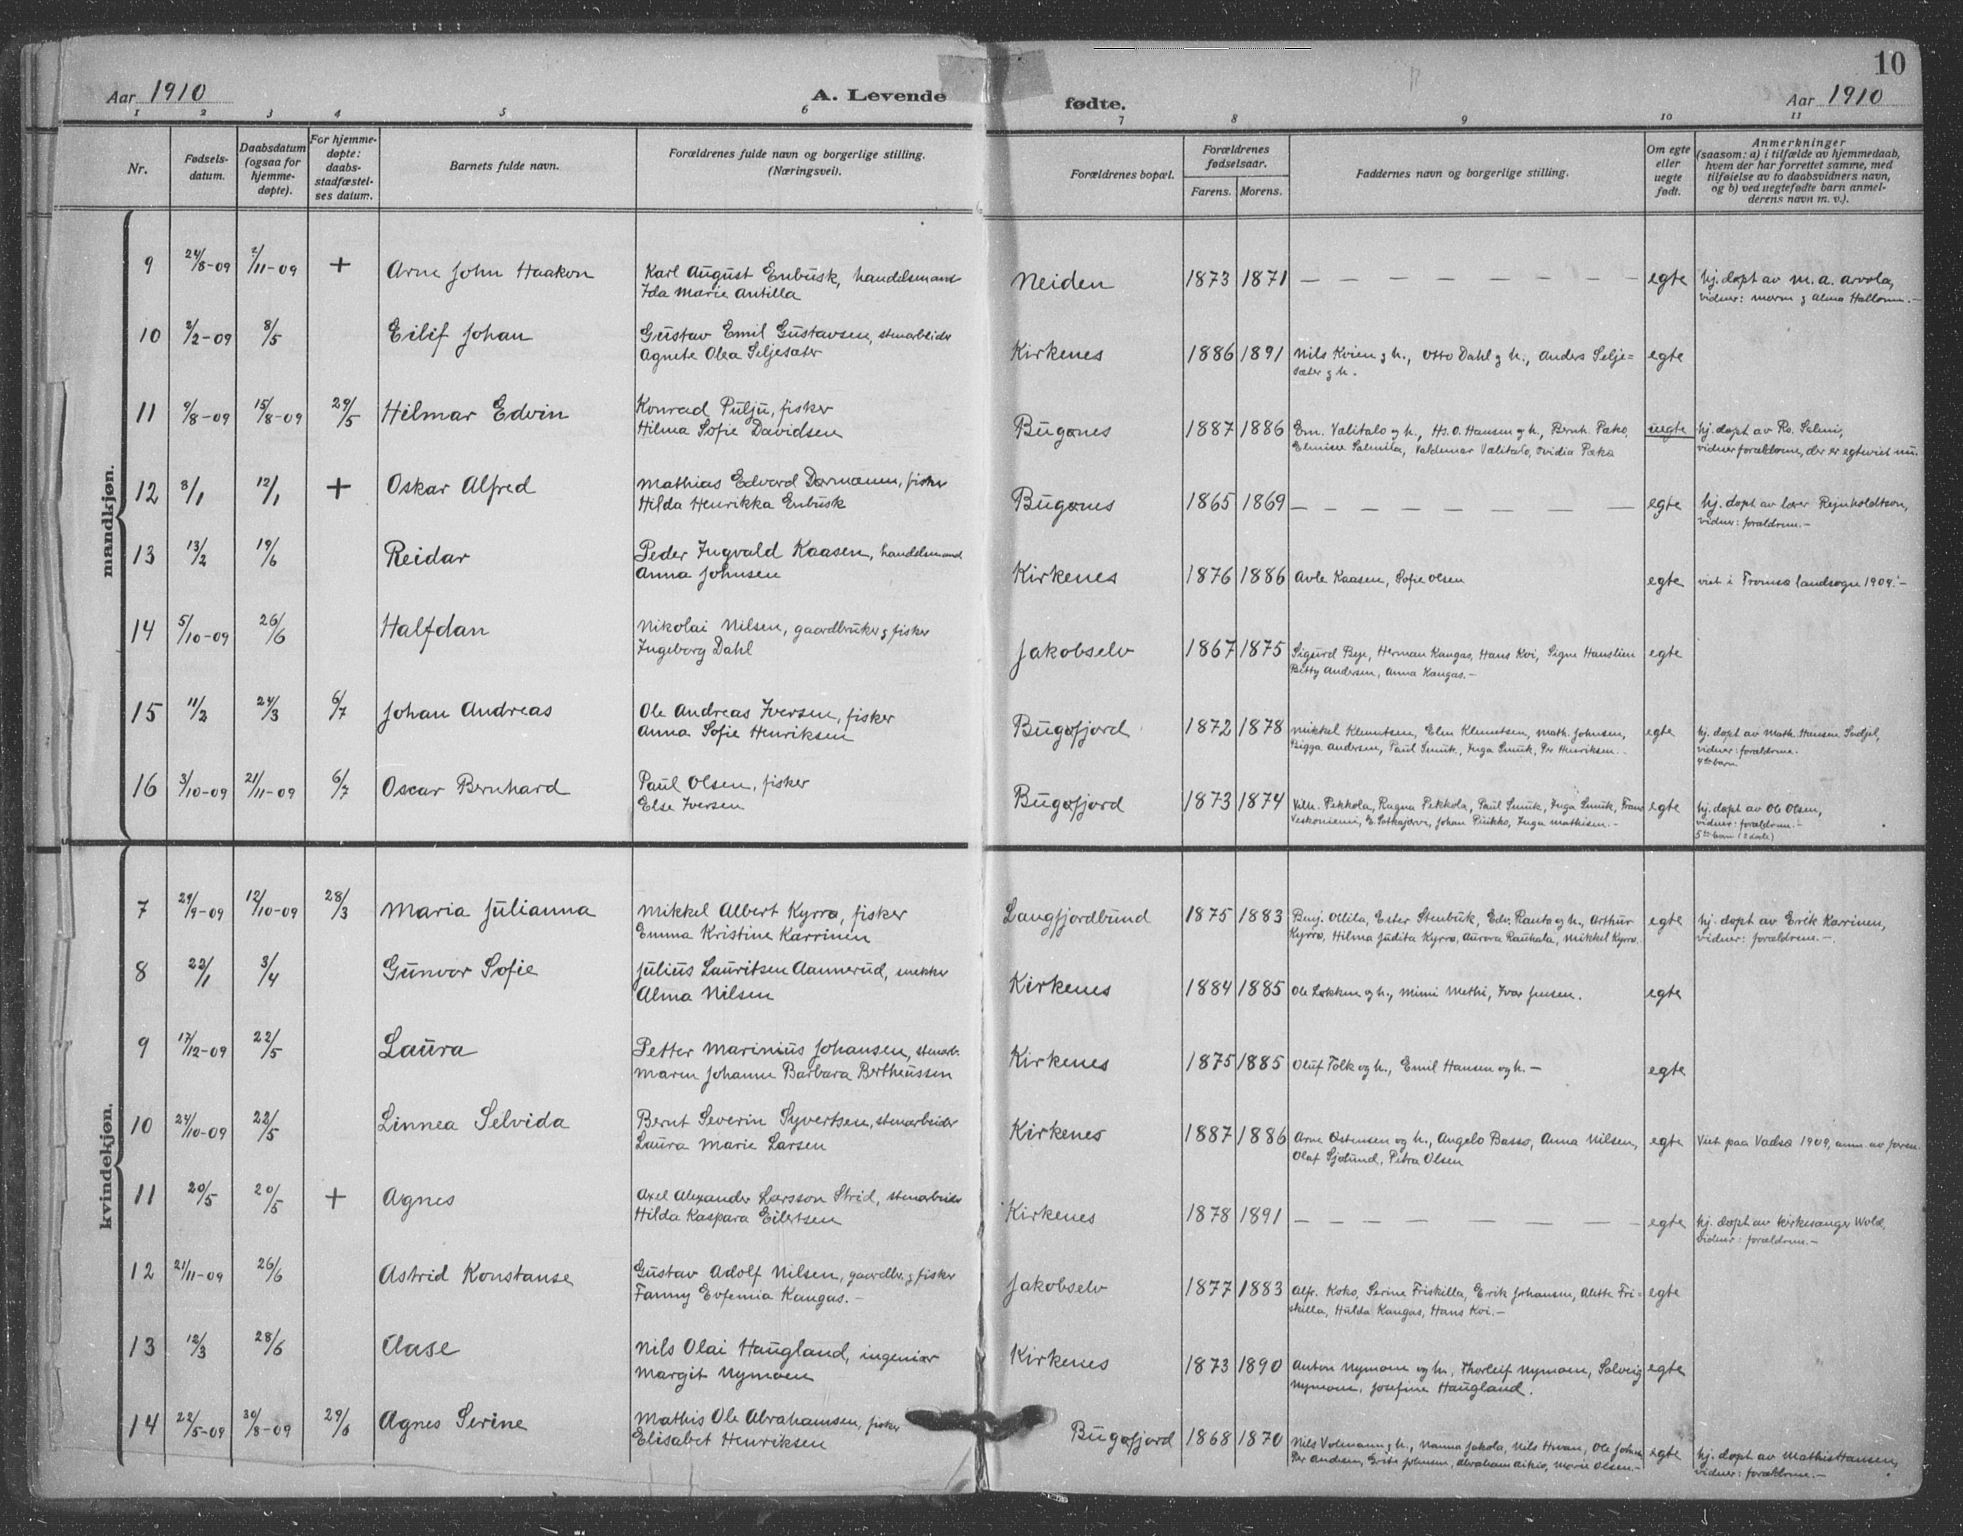 10
Aar 1910 A. Levende fødte. Aar 1910
1 2 3 4 5 6 7 8 9 10 11
Nr.
Fødsels-
datum.
Daabsdatum
(ogsaa for
hjemme-
døpte).
For hjemme-
døpte:
daabs-
stadfæstel-
ses datum.
Barnets fulde navn.
Forældrenes fulde navn og borgerlige stilling.
(Næringsvei).
Forældrenes bopæl.
Forældrenes
fødselsaar.
Farens. Morens.
Faddernes navn og borgerlige stilling.
Om egte
eller
uegte
født.
Anmerkninger
(saasom: a) i tilfælde av hjemmedaab,
hvem der har forrettet samme, med
tilføielse av to daabsvidners navn,
og b) ved uegtefødte barn anmel-
derens navn m. v.).
mandkjøn.
9 24/8-09 2/11-09 + Arne John Haakon Karl August Enbusk, handelsmand Neiden 1873 1871 — — — — — — — — egte hj. døpt av M. A. Arvola,
Ida Marie Antilla vidner: moren & Alma Hallonen.-
10 2/2-09 8/5 Eilif Johan Gustav Emil Gustavsen, stenarbeider Kirkenes 1886 1891 Nils Kvien & h., Otto Dahl & h., Anders Selje= egte
Agnete Olea Seljesæter sæter & h.
11 9/8-09 15/8-09 29/5 Hilmar Edvin Konrad Pulju, fisker Bugønes 1887 1886 Em. Vælitalo og h., Hs. O. Hansen og h., Bernh. Pæko, uegte hj. døpt av Ro. Selmi,
Hilma Sofie Davidsen Elmine Salmila, Valdemar Vælitalo, Ovidia Pæko vidner forældrene, der er egteviet nu.
12 8/1 12/1 + Oskar Alfred Mathias Edvard Dørmænen, fisker Bugønes 1865 1869 — — — — — — — — egte hj. døpt av lærer Reinholdtsen,
Hilda Henrikka Enbusk vidner: forældrene.-
13 13/2 19/6 Reidar Peder Ingvald Kaasen, handelsmand Kirkenes 1876 1886 Avle Kaasen, Sofie Olsen egte viet i Tromsø landsogn 1909.-
Anna Johnsen
14 5/10-09 26/6 Halfdan Nikolai Nilsen, gaardbruker & fisker Jakobselv 1867 1875 Sigurd Bye, Herman Kangas, Hans Koi, Signe Hanslien egte
Ingeborg Dahl Betty Andersen, Anna Kangas.-
15 11/2 24/3 6/7 Johan Andreas Ole Andreas Iversen, fisker Bugøfjord 1872 1878 Mikkel Klemetsen, Elen Klemetsen, Math. Johnsen, egte hj. døpt av Math. Hansen
Anna Sofie Henriksen Bigga Andersen, Paul Smuk, Inga Smuk, Per Henriksen. vidner: forældrene.
4de barn
16 3/10-09 21/11-09 6/7 Oscar Bernhard Paul Olsen, fisker Bugøfjord 1873 1874 Vilh. Pekkola, Ragna Pekkola, Paul Smuk, Inga Smuk, Frans egte hj. døpt av Ole Olsen,
Else Iversen Veskoniemi, E. Sotkajærvi, Johan Piukko, Inga Mathisen.- vidner: forældrene.-
5te barn (2 døde)
kvindekjøn.
7 29/9-09 12/10-09 28/3 Maria Julianna Mikkel Albert Kyrrø, fisker Langfjordbund 1875 1883 Benj. Ollila, Ester Stenbuk, Edv. Ranta og h., Arthur egte hj. døpt av Erik Karrinen,
Emma Kristine Karrinen Kyrrø, Hilma Judita Kyrrø, Aurora Rauhala, Mikkel Kyrrø. vidner: forældrene.-
8 22/1 3/4 Gunvor Sofie Julius Lauritsen Aannerud, snekker Kirkenes 1884 1885 Ole Løkken og h., Mimi Methi, Ivar Jensen. egte
Alma Nilsen
9 17/12-09 22/5 Laura Petter Marinius Johansen, stenarb. Kirkenes 1875 1885 Oluf Tolk og h., Emil Hansen og h.- egte
Maren Johanne Barbara Bertheussen
10 24/10-09 22/5 Linnea Selvida Bernt Severin Syvertsen, stenarbeider Kirkenes 1887 1886 Arne Østensen og h., Angelo Basso, Anna Nilsen, egte Viet paa Vadsø 1909, anm. av faren
Laura Marie Larsen Olaf Sjølund, Petra Olsen
11 20/5 20/5 + Agnes Axel Alexander Larsson Strid, stenarbeider Kirkenes 1878 1891 — — — — — — — — egte hj. døpt av kirkesanger Wold,
Hilda Kaspara Eilertsen vidner: forældrene.-
12 21/11-09 26/6 Astrid Konstanse Gustav Adolf Nilsen, gaardbr. & fisker Jakobselv 1877 1883 Alfr. Koko, Serine Friskilla, Erik Johansen, Alette Fri= egte
Fanny Evfemia Kangas.- skilla, Hulda Kangas, Hans Koi.-
13 12/3 28/6 Aase Nils Olai Haugland, ingeniør Kirkenes 1873 1890 Anton Nymoen og h., Thorleif Nymoen, Solveig egte
Margit Nymoen Nymoen, Josefine Haugland.
14 22/5-09 30/8-09 29/6 Agnes Serine Mathis Ole Abrahamsen, fisker Bugøfjord 1868 1870 Nils Volmann & h., Nanna Jakola, Nils Hivan, Ole Johns. egte hj. døpt av Mathis Hansen,
Elisabet Henriksen Per Andsen, Grete Johnsen, Abraham Aikio, Marie Olsen.- vidner: forældrene.-